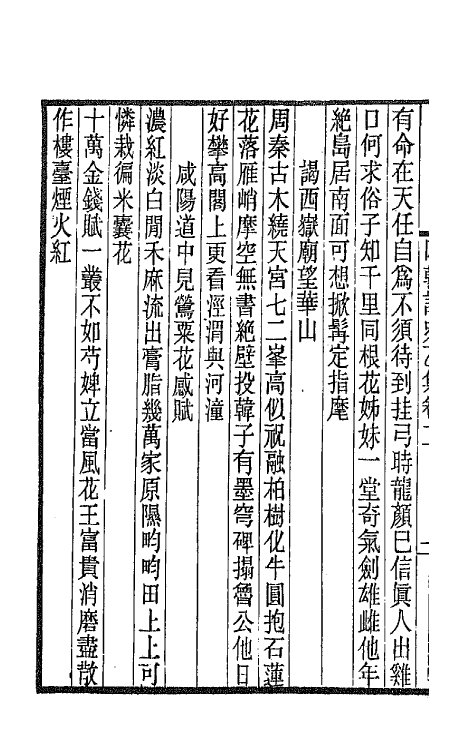 有命在天任自爲不須待到挂弓時龍顏巳信眞人出雞
口何求俗子知千里同根花姊妹一堂奇氣劍雄雌他年
絶島居南面可想掀髯定指麾
謁西嶽廟望華山
周秦古木繞天宮七二峯高似祝融柏樹化牛圓抱石蓮
花落雁峭摩空無書絶壁投韓子有墨穹碑搨魯公他日
好攀高閣上更看涇渭與河潼
咸陽道中見鶯粟花感賦
濃紅淡白閒禾麻流出膏脂幾萬家原隰畇畇田上上可
憐栽徧米囊花
十萬金錢賦一叢不如芍婢立當風花王富貴消磨盡散
作樓臺煙火紅